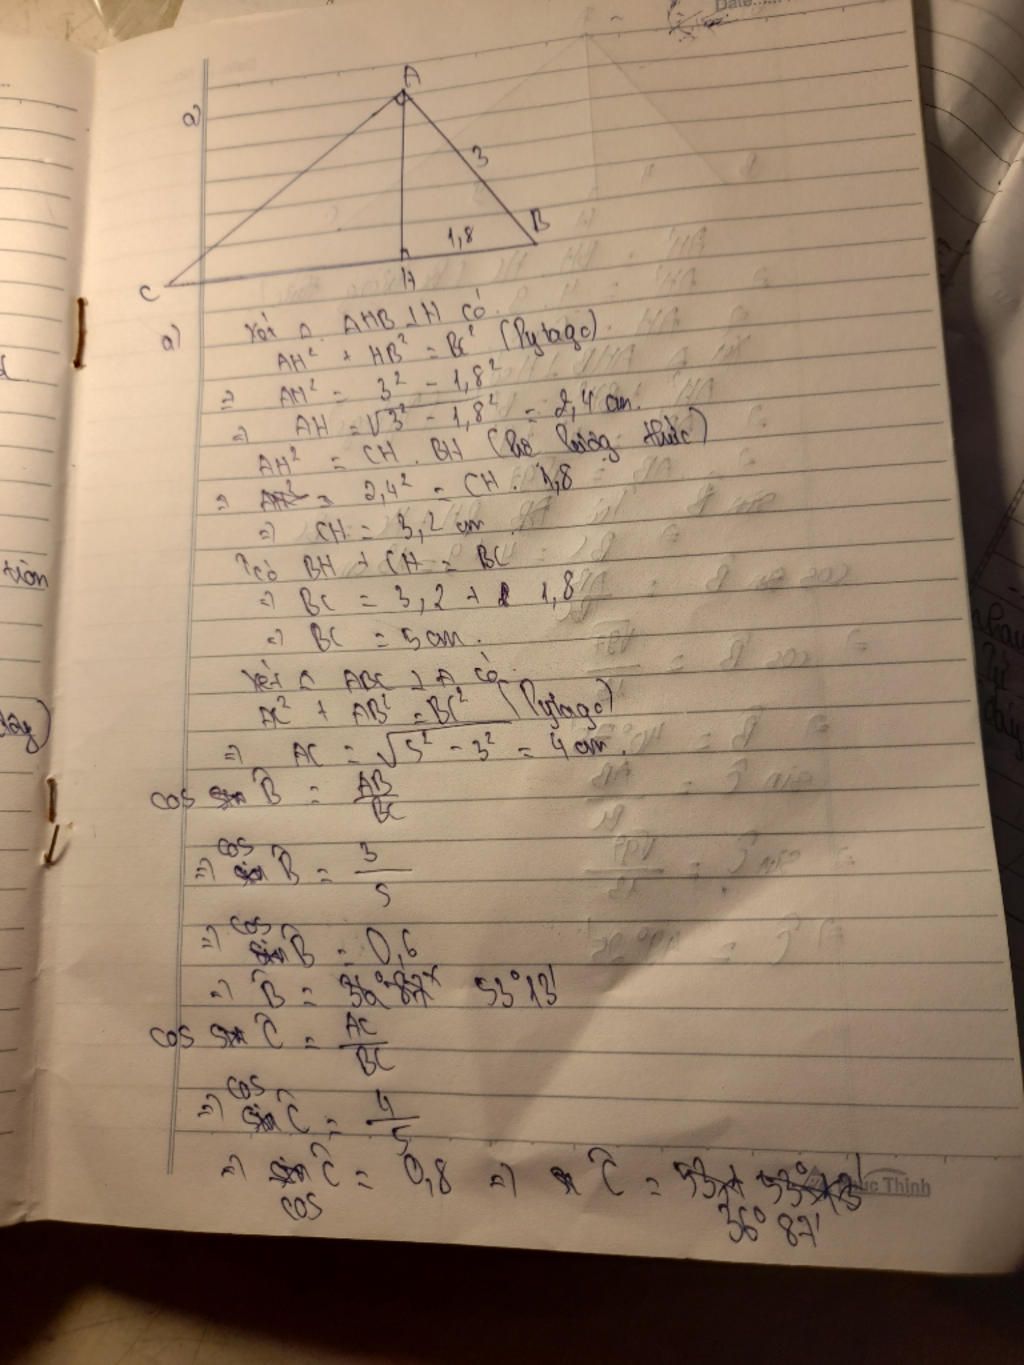 Date.....
a)
A
3
B
1,8
C
H
a) Xét △ AHB ⊥ H có
AH² + HB² = BC² (Pytago)
=> AH² = 3² - 1,8²
=> AH = √3² - 1,8² = 2,4 cm.
AH² = CH . BH (hệ lượng thức)
=> AH² = 2,4² = CH . 1,8
=> CH = 3,2 cm
Có BH + CH = BC
=> BC = 3,2 + 1,8
=> BC = 5 cm.
Xét △ ABC ⊥ A có
AC² + AB² = BC² (Pytago)
=> AC = √5² - 3² = 4 cm.
cos sin B̂ = AB/BC
=> cos sin B̂ = 3/5
=> cos sin B̂ = 0,6
=> B̂ = 36°87' 53°13'
cos sin Ĉ = AC/BC
=> cos sin Ĉ = 4/5
=> sin cos Ĉ = 0,8 => Ĉ = 53°13'
36°87'
Phúc Thịnh
tròn
dây)